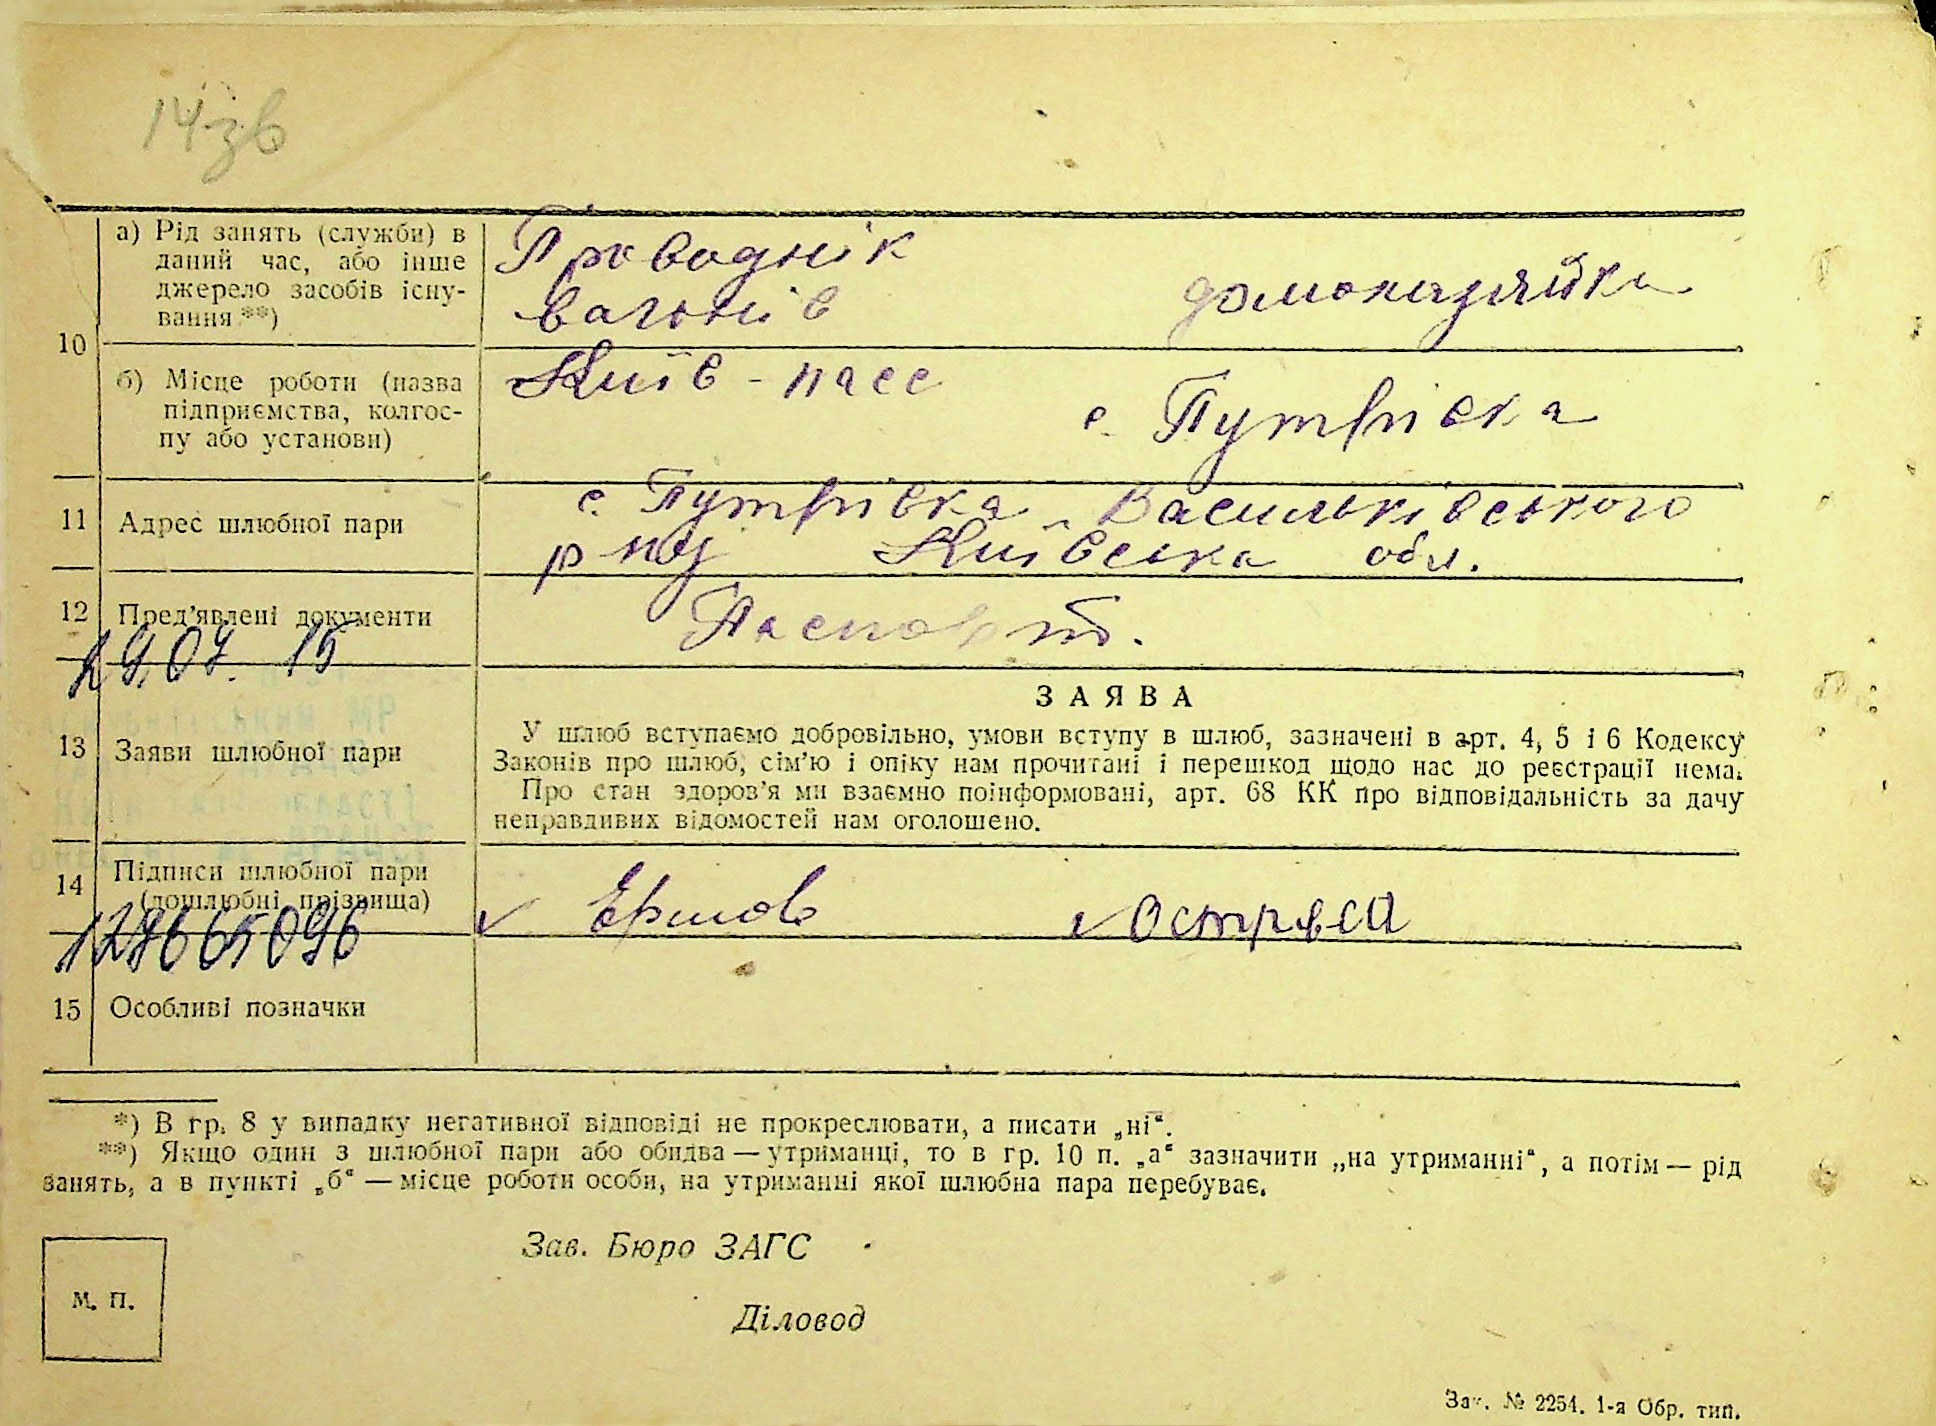 14зв
а) Рід занять (служби) в
даний час, або інше
джерело засобів існу-
вання **)
Проводнік
вагонів
домохазяйка
10
б) Місце роботи (назва
підприємства, колгос-
пу або установи)
Київ - пасс
с. Путрівка
11
Адрес шлюбної пари
с. Путрівка Васильківського
р-ну Київська обл.
12
Пред’явлені документи
Паспорт.
29.07.15
13
Заяви шлюбної пари
ЗАЯВА
У шлюб вступаємо добровільно, умови вступу в шлюб, зазначені в арт. 4, 5 і 6 Кодексу
Законів про шлюб, сім’ю і опіку нам прочитані і перешкод щодо нас до реєстрації нема.
Про стан здоров’я ми взаємно поінформовані, арт. 68 КК про відповідальність за дачу
неправдивих відомостей нам оголошено.
14
Підписи шлюбної пари
(дошлюбні прізвища)
Ершов
127665096
15
Особливі позначки
*) В гр. 8 у випадку негативної відповіді не прокреслювати, а писати „ні“.
**) Якщо один з шлюбної пари або обидва — утриманці, то в гр. 10 п. „а“ зазначити „на утриманні“, а потім — рід
занять, а в пункті „б“ — місце роботи особи, на утриманні якої шлюбна пара перебуває.
Зав. Бюро ЗАГС
М. П.
Діловод
Зак. № 2254. 1-я Обр. тип.